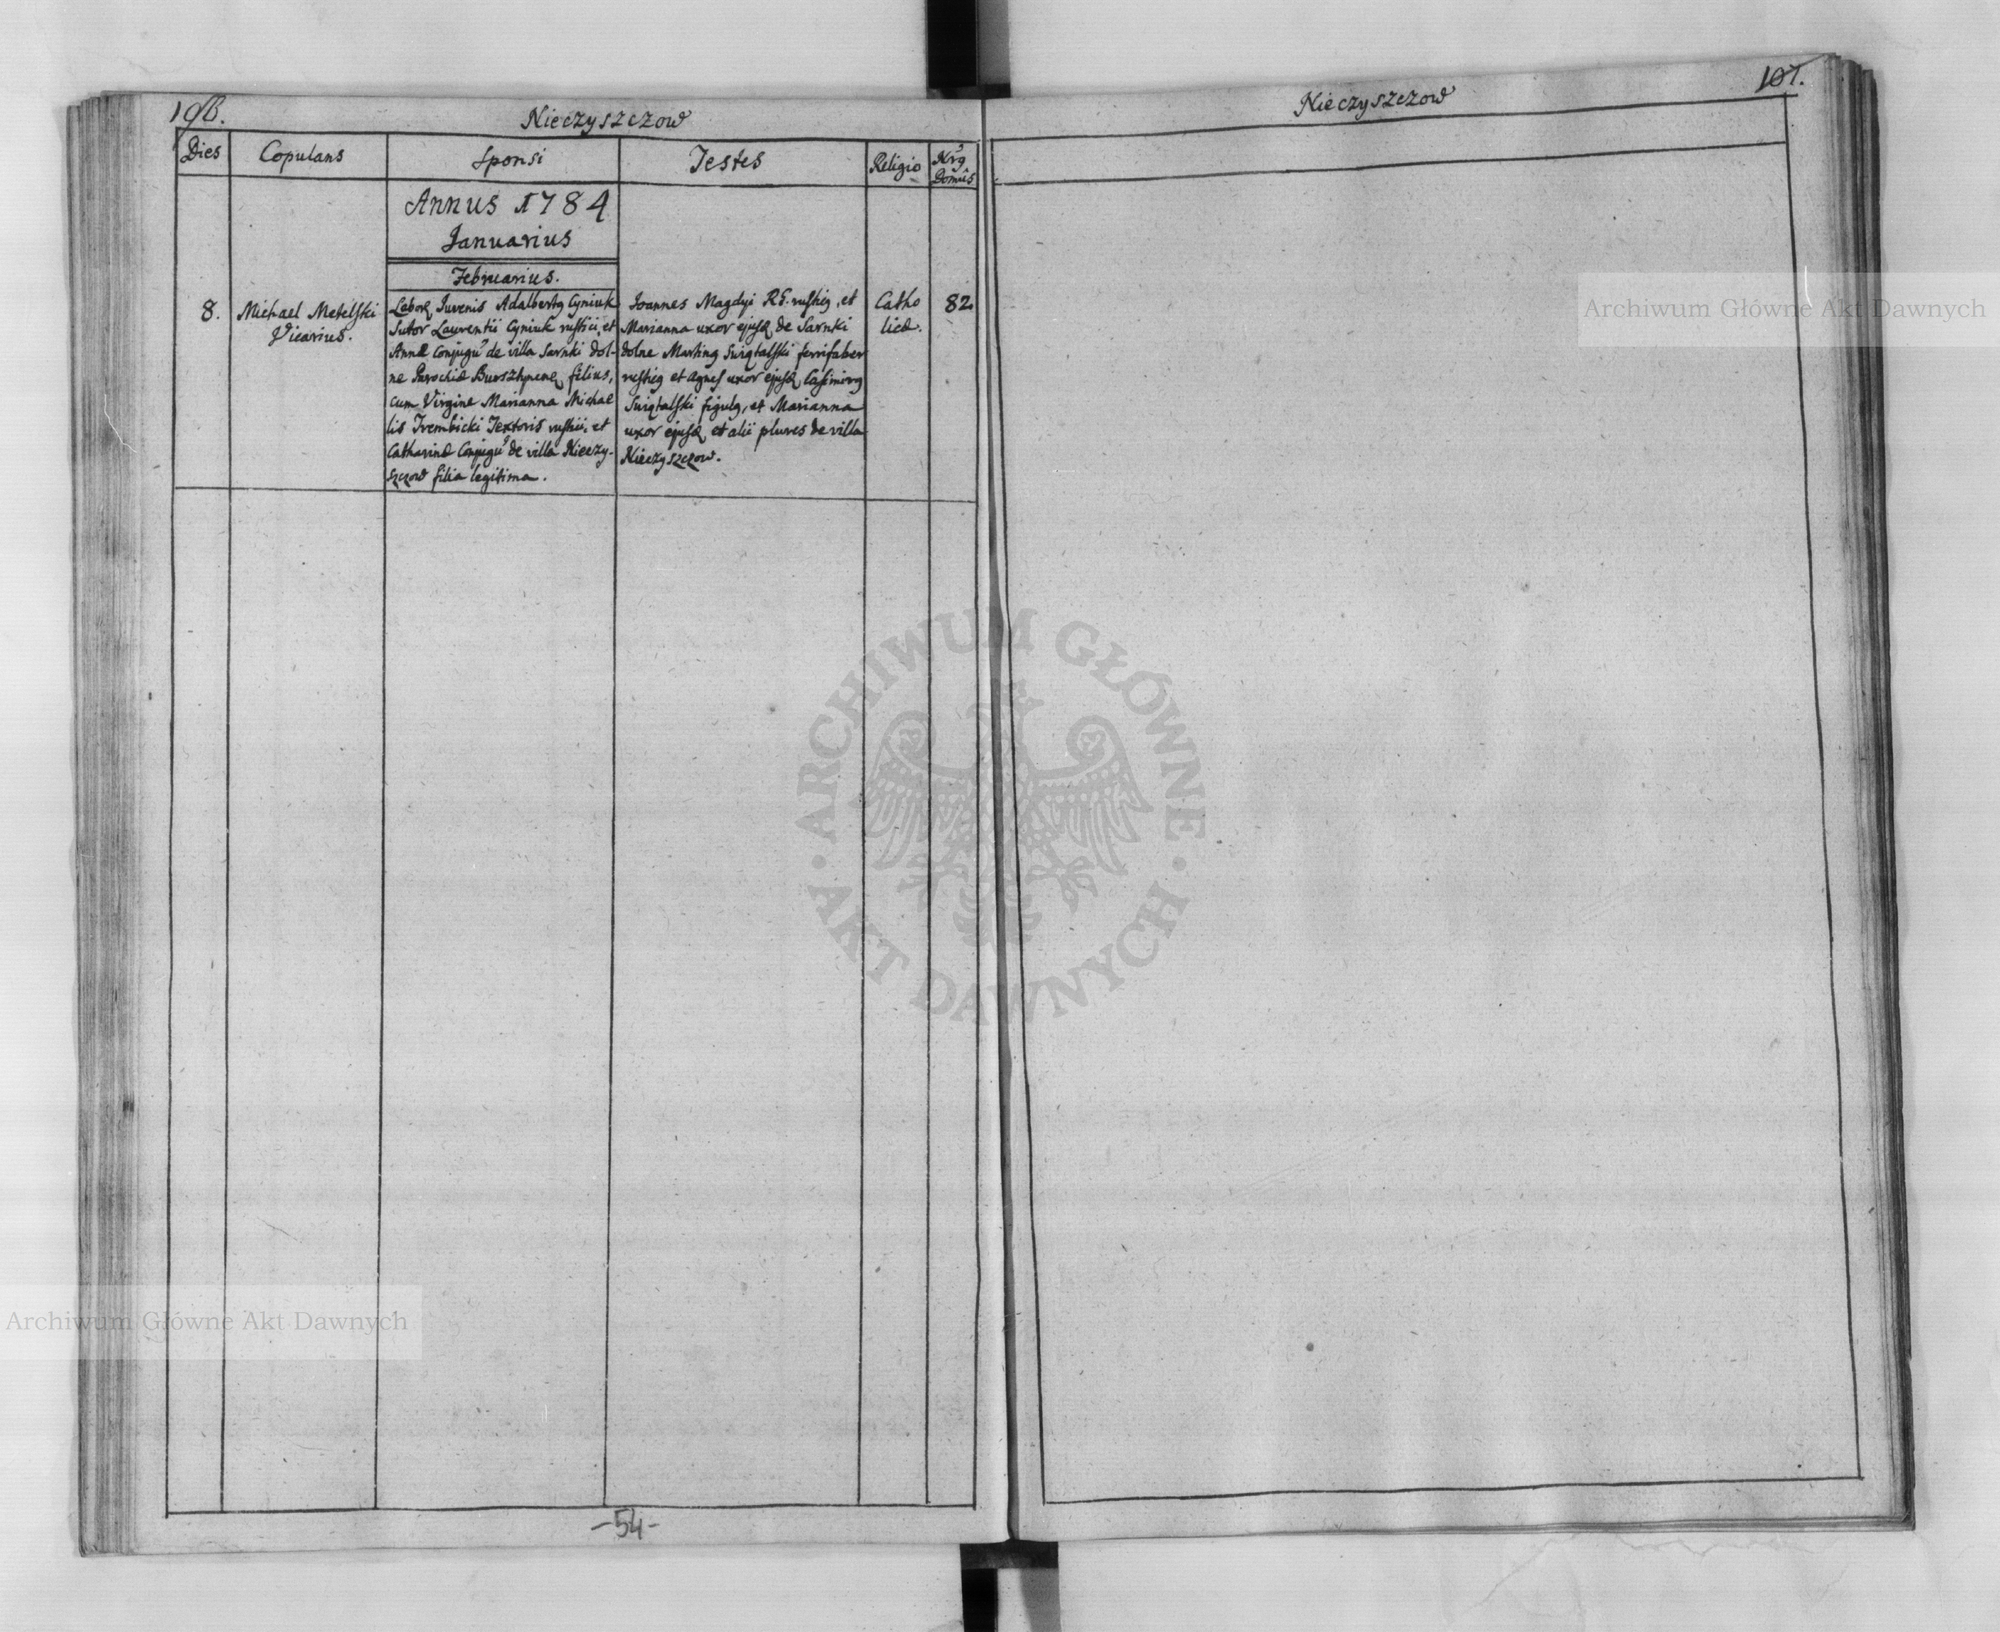 106.
Nieczyszczow
Dies
Copulans
Sponsi
Testes
Religio
Nrg
Domus
Annus 1784
Januarius
Februarius.
8.
Michael Metelski
Vicarius.
Labor Juvenis Adalbertg Cyniuk
Sutor Laurentii Cyniuk rustici, et
Annæ Conjugu de villa Sarnki dol-
ne Parochiæ Bursztynen filius,
cum Virgine Marianna Michae
lis Trembicki Textoris rustici, et
Catharinæ Conjugu de villa Nieczy-
szczow filia legitima.
Joannes Magdyi RG. rusticg, et
Marianna uxor ejusq de Sarnki
dolne Marting Swiątalski ferrifaber
rusticg et Agnes uxor ejusq Casimirg
Swiątalski figulg, et Marianna
uxor ejusq et alii plures de villa
Nieczyszczow.
Catho
licæ.
82
-54-
107.
Nieczyszczow
Archiwum Główne Akt Dawnych
Archiwum Główne Akt Dawnych
ARCHIWUM GŁÓWNE
· AKT DAWNYCH ·